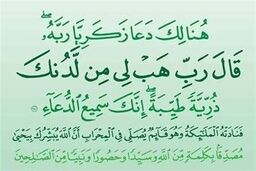 هُنَالِكَ دَعَا زَكَرِيَّا رَبَّهُ ۖ
قَالَ رَبِّ هَبْ لِي مِن لَّدُنكَ
ذُرِّيَّةً طَيِّبَةً ۖ إِنَّكَ سَمِيعُ الدُّعَاءِ
فَنَادَتْهُ الْمَلَائِكَةُ وَهُوَ قَائِمٌ يُصَلِّي فِي الْمِحْرَابِ أَنَّ اللَّهَ يُبَشِّرُكَ بِيَحْيَىٰ
مُصَدِّقًا بِكَلِمَةٍ مِّنَ اللَّهِ وَسَيِّدًا وَحَصُورًا وَنَبِيًّا مِّنَ الصَّالِحِينَ